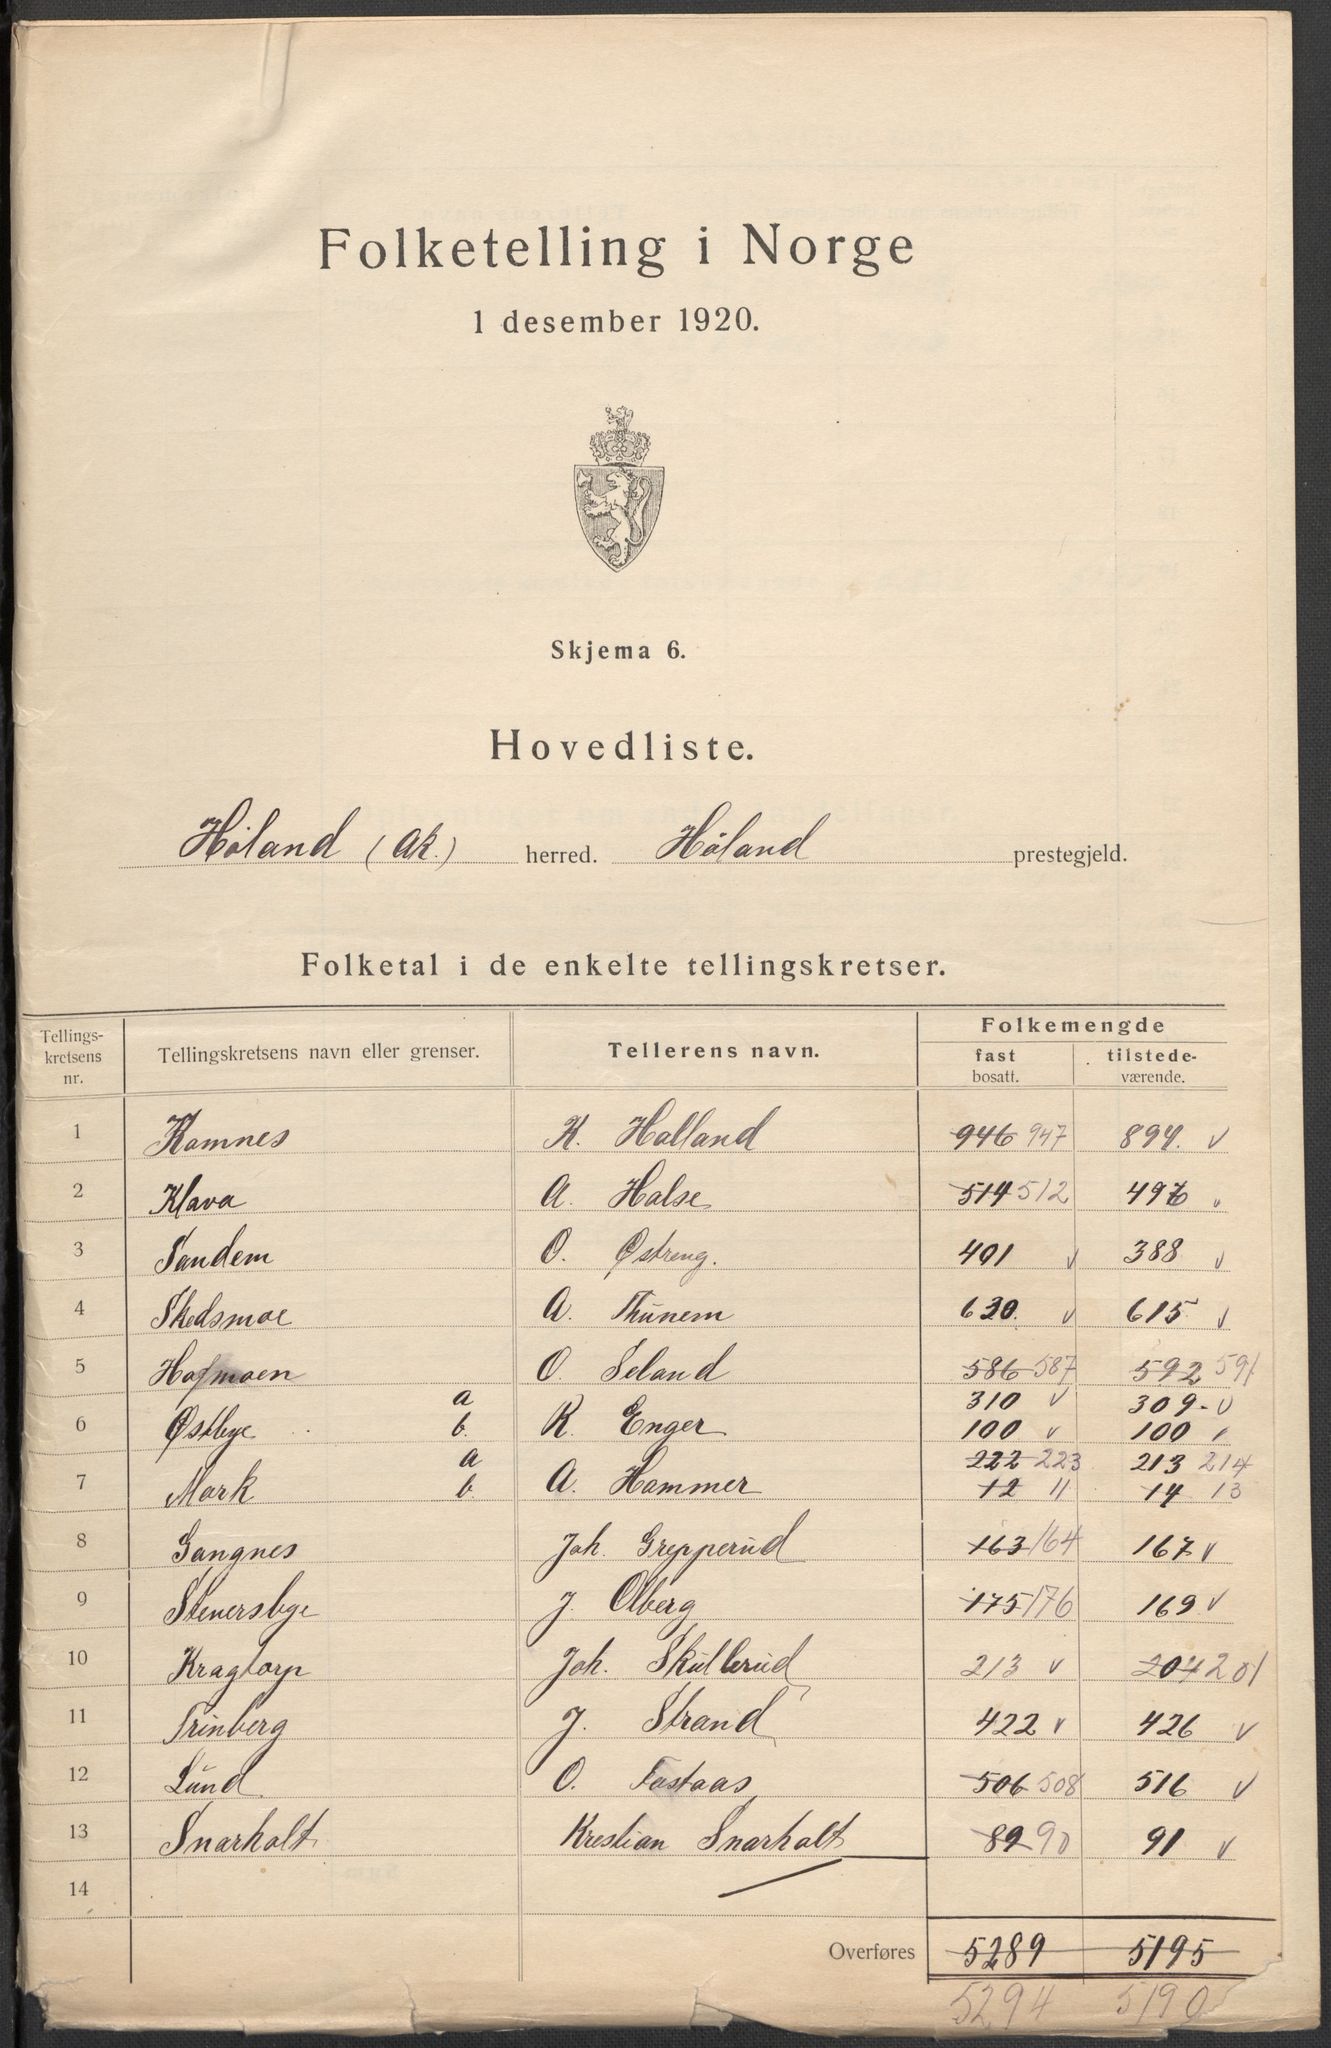 Folketelling i Norge
1 desember 1920.
Skjema 6.
Hovedliste.
Høland (Ak.) herred. Høland prestegjeld.
Folketal i de enkelte tellingskretser.
Tellings-kretsens nr. Tellingskretsens navn eller grenser. Tellerens navn. Folkemengde fast bosatt. tilstede-værende.
1 Komnes K. Holland 946 947 894. v
2 Klava A. Holse 514 512 496 v
3 Sandem O. Østreng. 401 v 388 v
4 Skedsmoe A. Thunem 630. v 615 v
5 Hofmoen O. Seland 586 587 592 591
a 310 v 309 - v
6 Østbye b. K. Enger 100 v 100 v
a 222 223 213 214
7 Mork b. A. Hammer 12 11 14 13
8 Gangnes Joh. Grepperud 163 164 167 v
9 Stenersbye J. Olberg 175 176 169 v
10 Kragtorp Joh. Skullerud 213 v 204 201
11 Trinberg J. Strand 422 v 426 v
12 Lund O. Fostaas 506 508 516 v
13 Snarholt Krestian Snarholt 89 90 91 v
14
Overføres 5289 5195
5294 5190